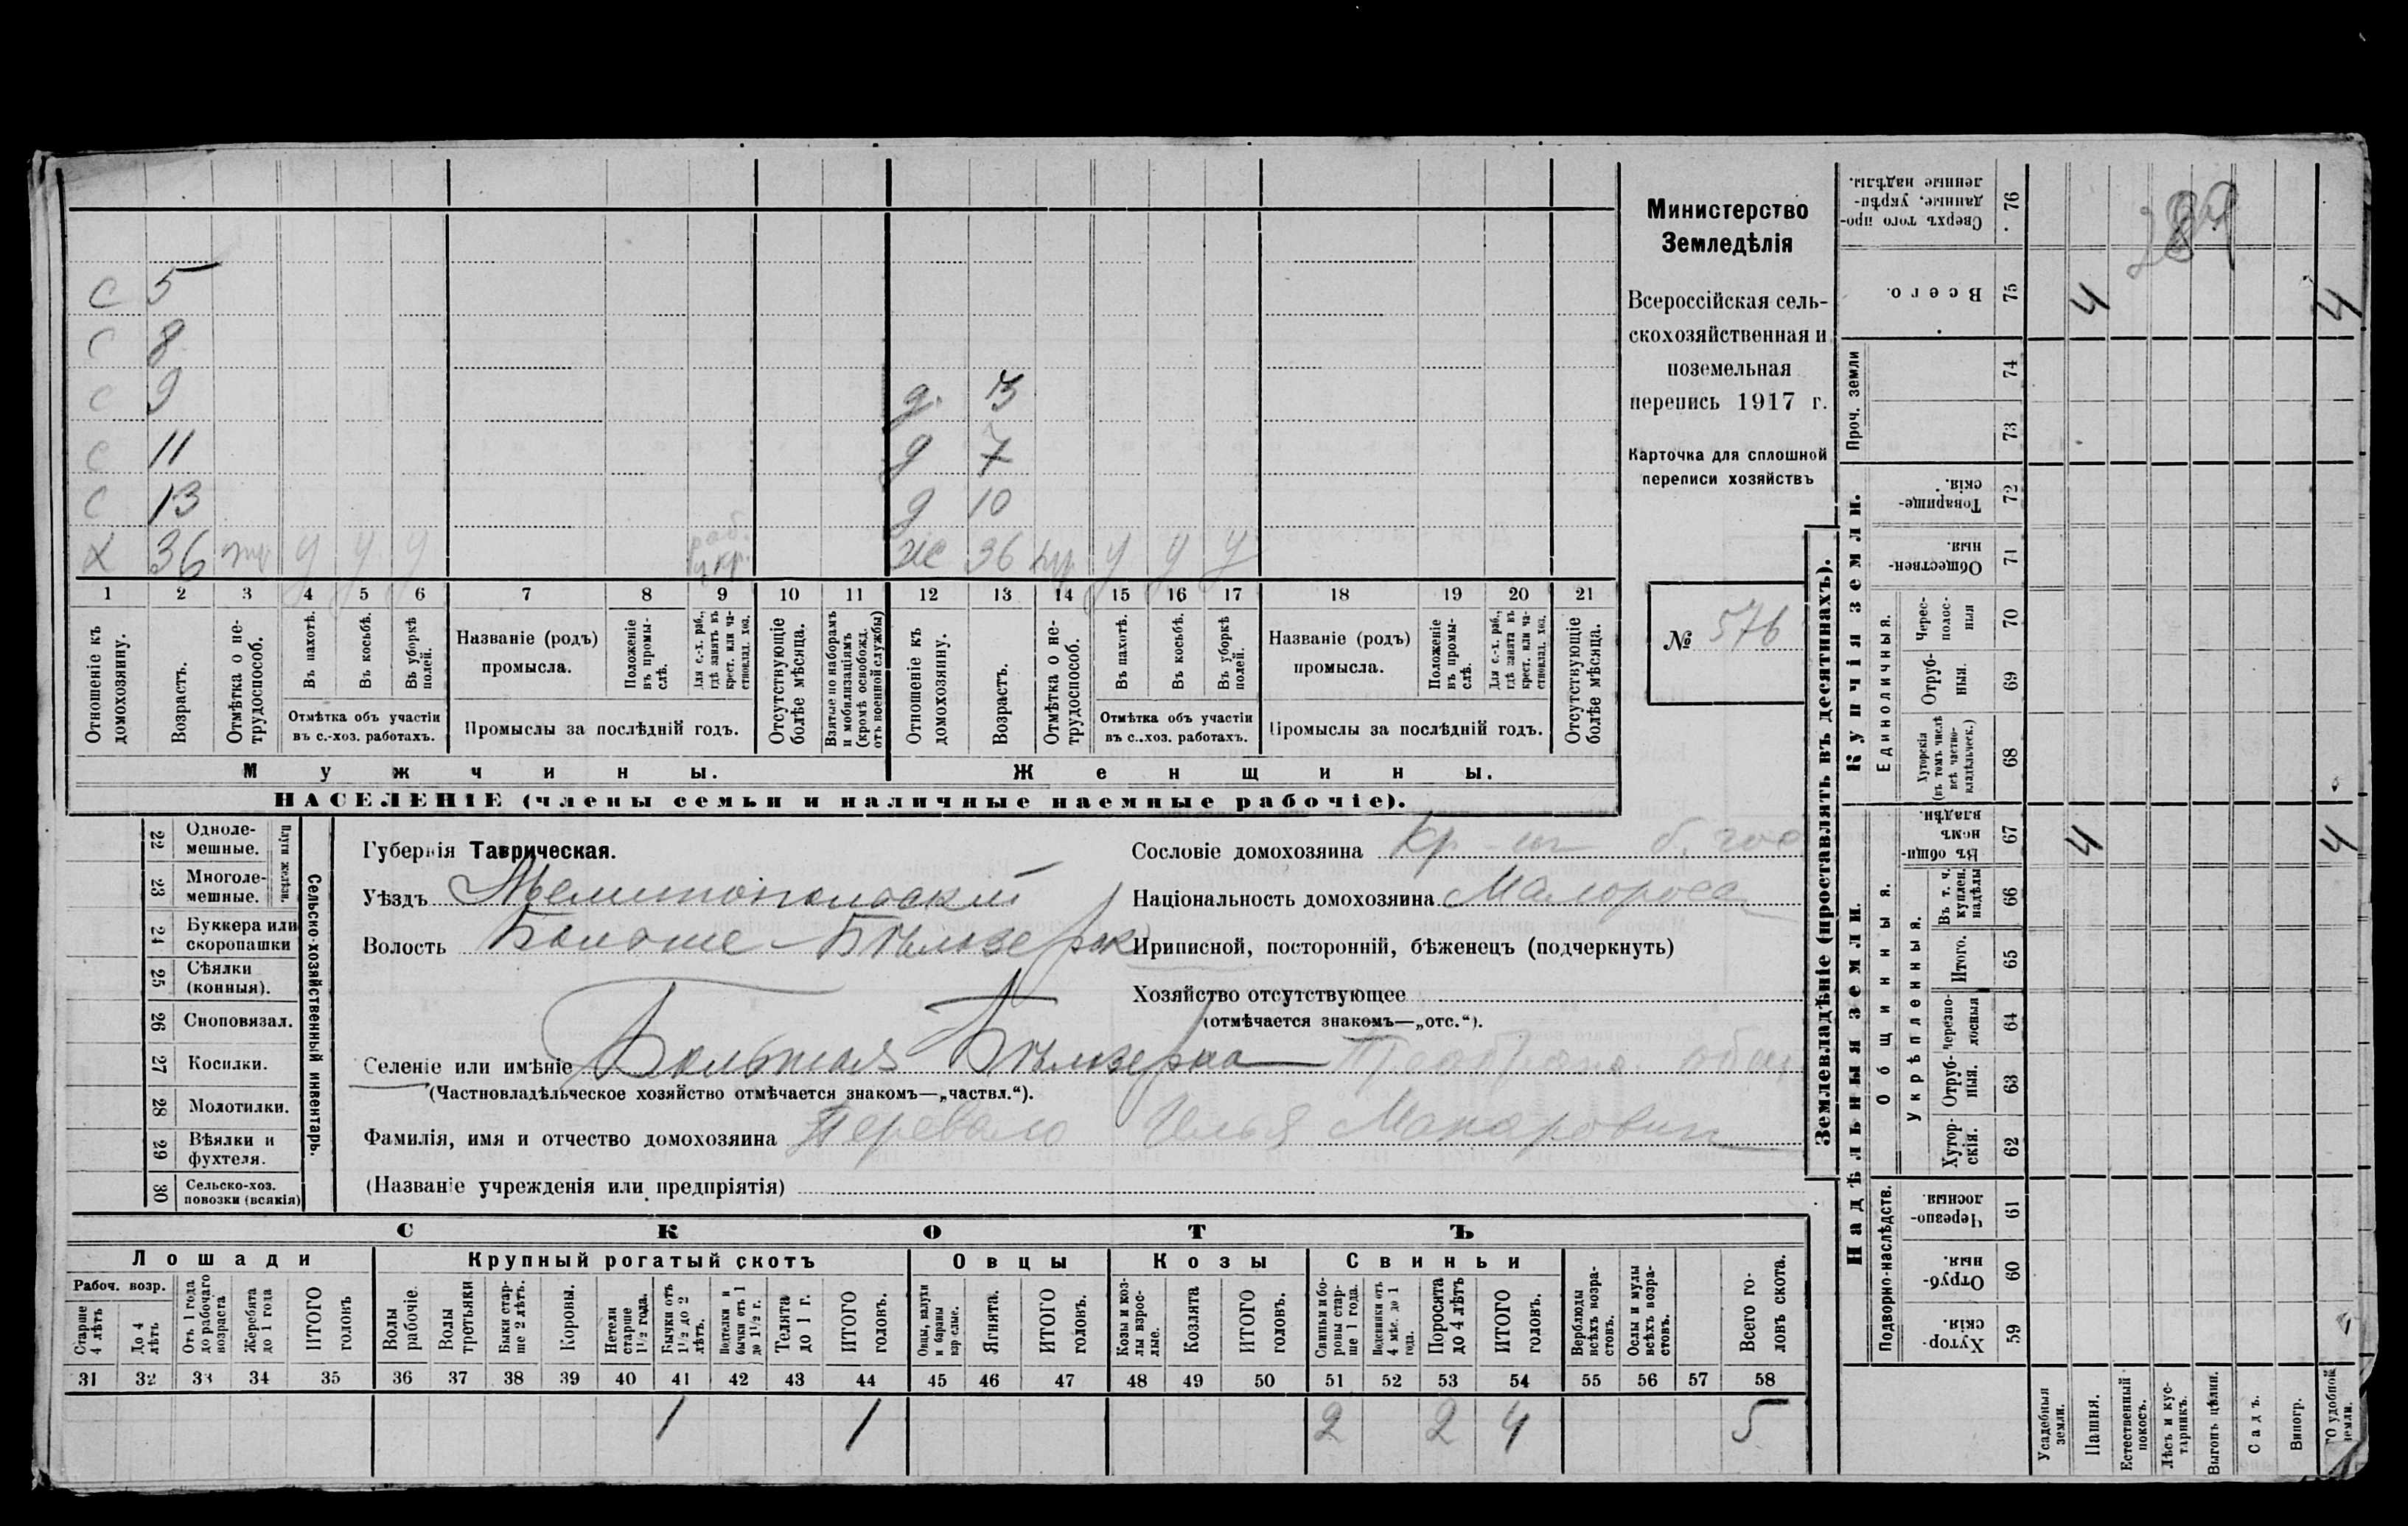 с 5
с 8
с 9 д. 3
с 11 д 7
с 13 д 10
х 36 у у у раб. ж 36 у у у
1 2 3 4 5 6 7 8 9 10 11 12 13 14 15 16 17 18 19 20 21
Отношеніе къ домохозяину.
Возрастъ.
Отмѣтка о не-трудоспособ.
Въ пахотѣ.
Въ косьбѣ.
Въ уборкѣ полей.
Отмѣтка объ участіи
въ с.-хоз. работахъ.
Названіе (родъ)
промысла.
Положеніе въ промы-слѣ.
Для с.-х. раб., гдѣ занятъ въ крест. или ча-стновлад. хоз.
Промыслы за послѣдній годъ.
Отсутствующіе болѣе мѣсяца.
Взятые по наборамъ и мобилизаціямъ (кромѣ освобожд. отъ военной службы)
Отношеніе къ домохозяину.
Возрастъ.
Отмѣтка о не-трудоспособ.
Въ пахотѣ.
Въ косьбѣ.
Въ уборкѣ полей.
Отмѣтка объ участіи
въ с.-хоз. работахъ.
Названіе (родъ)
промысла.
Положеніе въ промы-слѣ.
Для с.-х. раб., гдѣ занята въ крест. или ча-стновлад. хоз.
Промыслы за послѣдній годъ.
Отсутствующіе болѣе мѣсяца.
Мужчины. Женщины.
НАСЕЛЕНІЕ (члены семьи и наличные наемные рабочіе).
Министерство
Земледѣлія
Всероссійская сель-
скохозяйственная и
поземельная
перепись 1917 г.
Карточка для сплошной
переписи хозяйствъ
№ 576
22 Одноле-мешные.
23 Многоле-мешные.
Плуги желѣзн.
24 Буккера или скоропашки
25 Сѣялки (конныя).
26 Сноповязал.
27 Косилки.
28 Молотилки.
29 Вѣялки и фухтеля.
30 Сельско-хоз. повозки (всякія)
Сельско-хозяйственный инвентарь.
Губернія Таврическая.
Уѣздъ Мелитопольскій
Волость Больше-Бѣлозерк
Селеніе или имѣніе Большая Бѣлозерка
(Частновладѣльческое хозяйство отмѣчается знакомъ—„частвл.“).
Фамилія, имя и отчество домохозяина Перевало Илья Макарович
(Названіе учрежденія или предпріятія)
Сословіе домохозяина
Національность домохозяина Малоросс
Приписной, посторонній, бѣженецъ (подчеркнуть)
Хозяйство отсутствующее
(отмѣчается знакомъ—„отс.“).
СКОТЪ
Лошади Крупный рогатый скотъ Овцы Козы Свиньи
Рабоч. возр.
Старше 4 лѣтъ
До 4 лѣтъ
Отъ 1 года до рабочаго возраста
Жеребята до 1 года
ИТОГО головъ
Волы рабочіе.
Волы третьяки
Быки стар-ше 2 лѣтъ.
Коровы.
Нетели старше 1½ года.
Бычки отъ 1½ до 2 лѣтъ.
Подтелки и бычки отъ 1 до 1½ г.
Телята до 1 г.
ИТОГО головъ.
Овцы, валухи и бараны взрослые.
Ягнята.
ИТОГО головъ.
Козы и коз-лы взрос-лые.
Козлята
ИТОГО головъ.
Свиньи и бо-ровы стар-ше 1 года.
Подсвинки отъ 4 мѣс. до 1 года.
Поросята до 4 лѣтъ
ИТОГО головъ.
Верблюды всѣхъ возра-стовъ.
Ослы и мулы всѣхъ возра-стовъ.
Всего го-ловъ скота.
31 32 33 34 35 36 37 38 39 40 41 42 43 44 45 46 47 48 49 50 51 52 53 54 55 56 57 58
1 1 2 2 4 5
Землевладѣніе (проставлять въ десятинахъ).
Купчія земли.
Надѣльныя земли.
Сверхъ того про-данные, укрѣп-ленные надѣлы. 76
289
Всего. 75 4 4
Проч. земли
74
73
Товарище-скія. 72
Обществен-ныя. 71
Единоличныя.
Черес-полос-ныя 70
Отруб-ныя. 69
Хуторскія (въ томъ числѣ всѣ частно-владѣльческ.) 68
Общинныя.
Въ общи-номъ владѣн. 67 4 4
Укрѣпленныя.
Въ т. ч. куплен. надѣлы 66
Итого. 65
Черезпо-лосныя 64
Отруб-ныя. 63
Хутор-скія. 62
Подворно-наслѣдств.
Черезпо-лосныя. 61
Отруб-ныя. 60
Хутор-скія. 59
Усадебныя земли.
Пашня.
Естественный покосъ.
Лѣсъ и кус-тарникъ.
Выгонъ цѣлин.
Садъ.
Виногр.
ГО удобной земли.